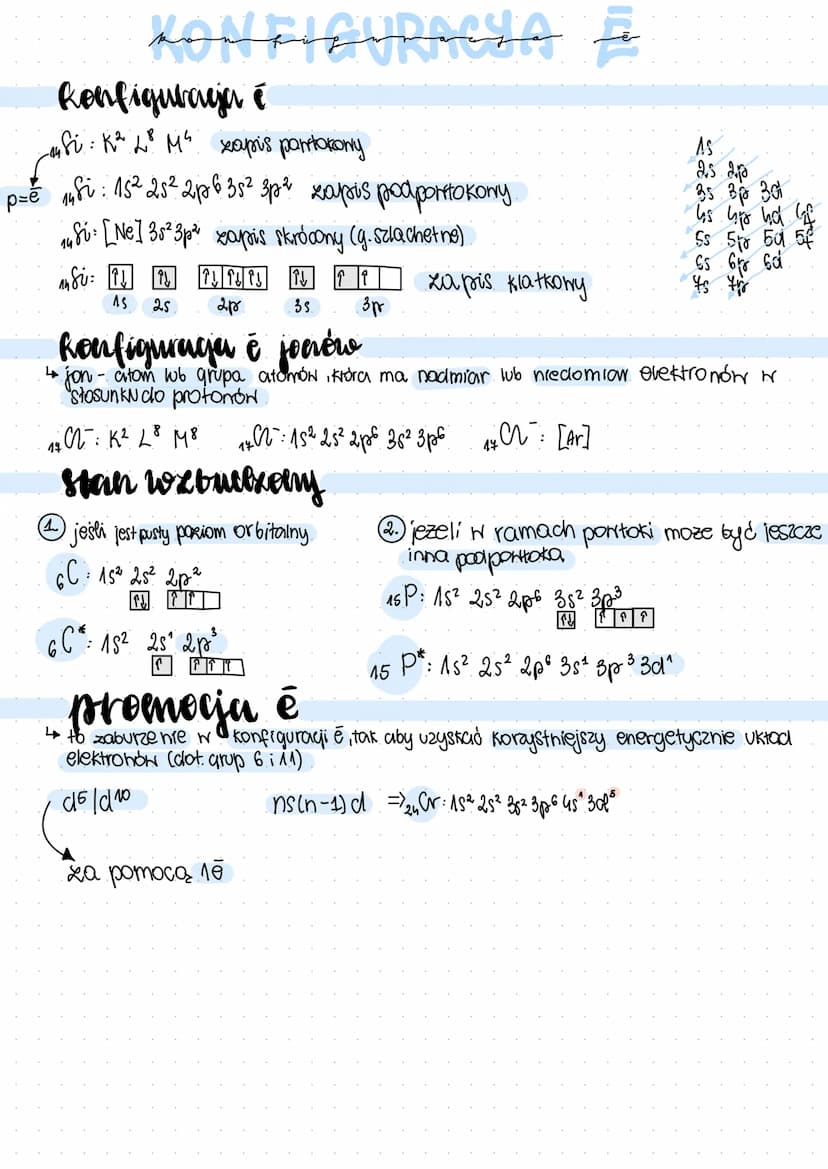 KONFIGURACJA Ē
konfiguracja ē
konfiguracja ē
₁₄Si : K² L⁸ M⁴ zapis powłokowy
p=ē ₁₄Si : 1s² 2s² 2p⁶ 3s² 3p² zapis podpowłokowy
₁₄Si: [Ne] 3s² 3p² zapis skrócony (g. szlachetne)
₁₄Si: ↑↓ ↑↓ ↑↓ ↑↓ ↑↓ ↑↓ ↑ ↑ zapis klatkowy
1s 2s 2p 3s 3p
1s
2s 2p
3s 3p 3d
4s 4p 4d 4f
5s 5p 5d 5f
6s 6p 6d
7s 7p
konfiguracja ē jonów
↳ jon - atom lub grupa atomów, która ma nadmiar lub niedomiar elektronów w
stosunku do protonów
₁₇Cl⁻: K² L⁸ M⁸ ₁₇Cl⁻: 1s² 2s² 2p⁶ 3s² 3p⁶ ₁₇Cl⁻: [Ar]
stan wzbudzony
1. jeśli jest pusty poziom orbitalny
₆C : 1s² 2s² 2p²
↑↓ ↑ ↑
₆C*: 1s² 2s¹ 2p³
↑ ↑ ↑ ↑
2. jeżeli w ramach powłoki może być jeszcze
inna podpowłoka
₁₅P: 1s² 2s² 2p⁶ 3s² 3p³
↑↓ ↑ ↑ ↑
₁₅P*: 1s² 2s² 2p⁶ 3s¹ 3p³ 3d¹
promocja ē
↳ to zaburzenie w konfiguracji ē, tak aby uzyskać korzystniejszy energetycznie układ
elektronów (dot. grup 6 i 11)
d⁵/d¹⁰ ns(n-1)d ⇒ ₂₄Cr: 1s² 2s² 3s² 3p⁶ 4s¹ 3d⁵
za pomocą 1ē